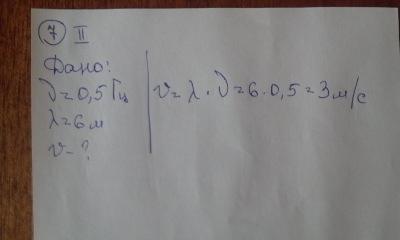 7 II
Дано:
ν=0,5 Гц
λ=6 м
v-?
v=λ·ν=6·0,5=3 м/с